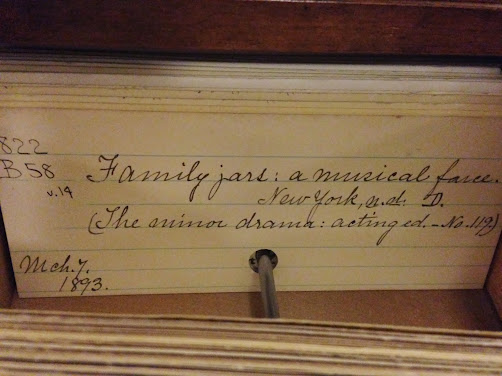 822
B58
v.14
Family jars: a musical farce.
New York, n.d. D.
(The minor drama: acting ed. - No. 119)
Mch. 7.
1893.